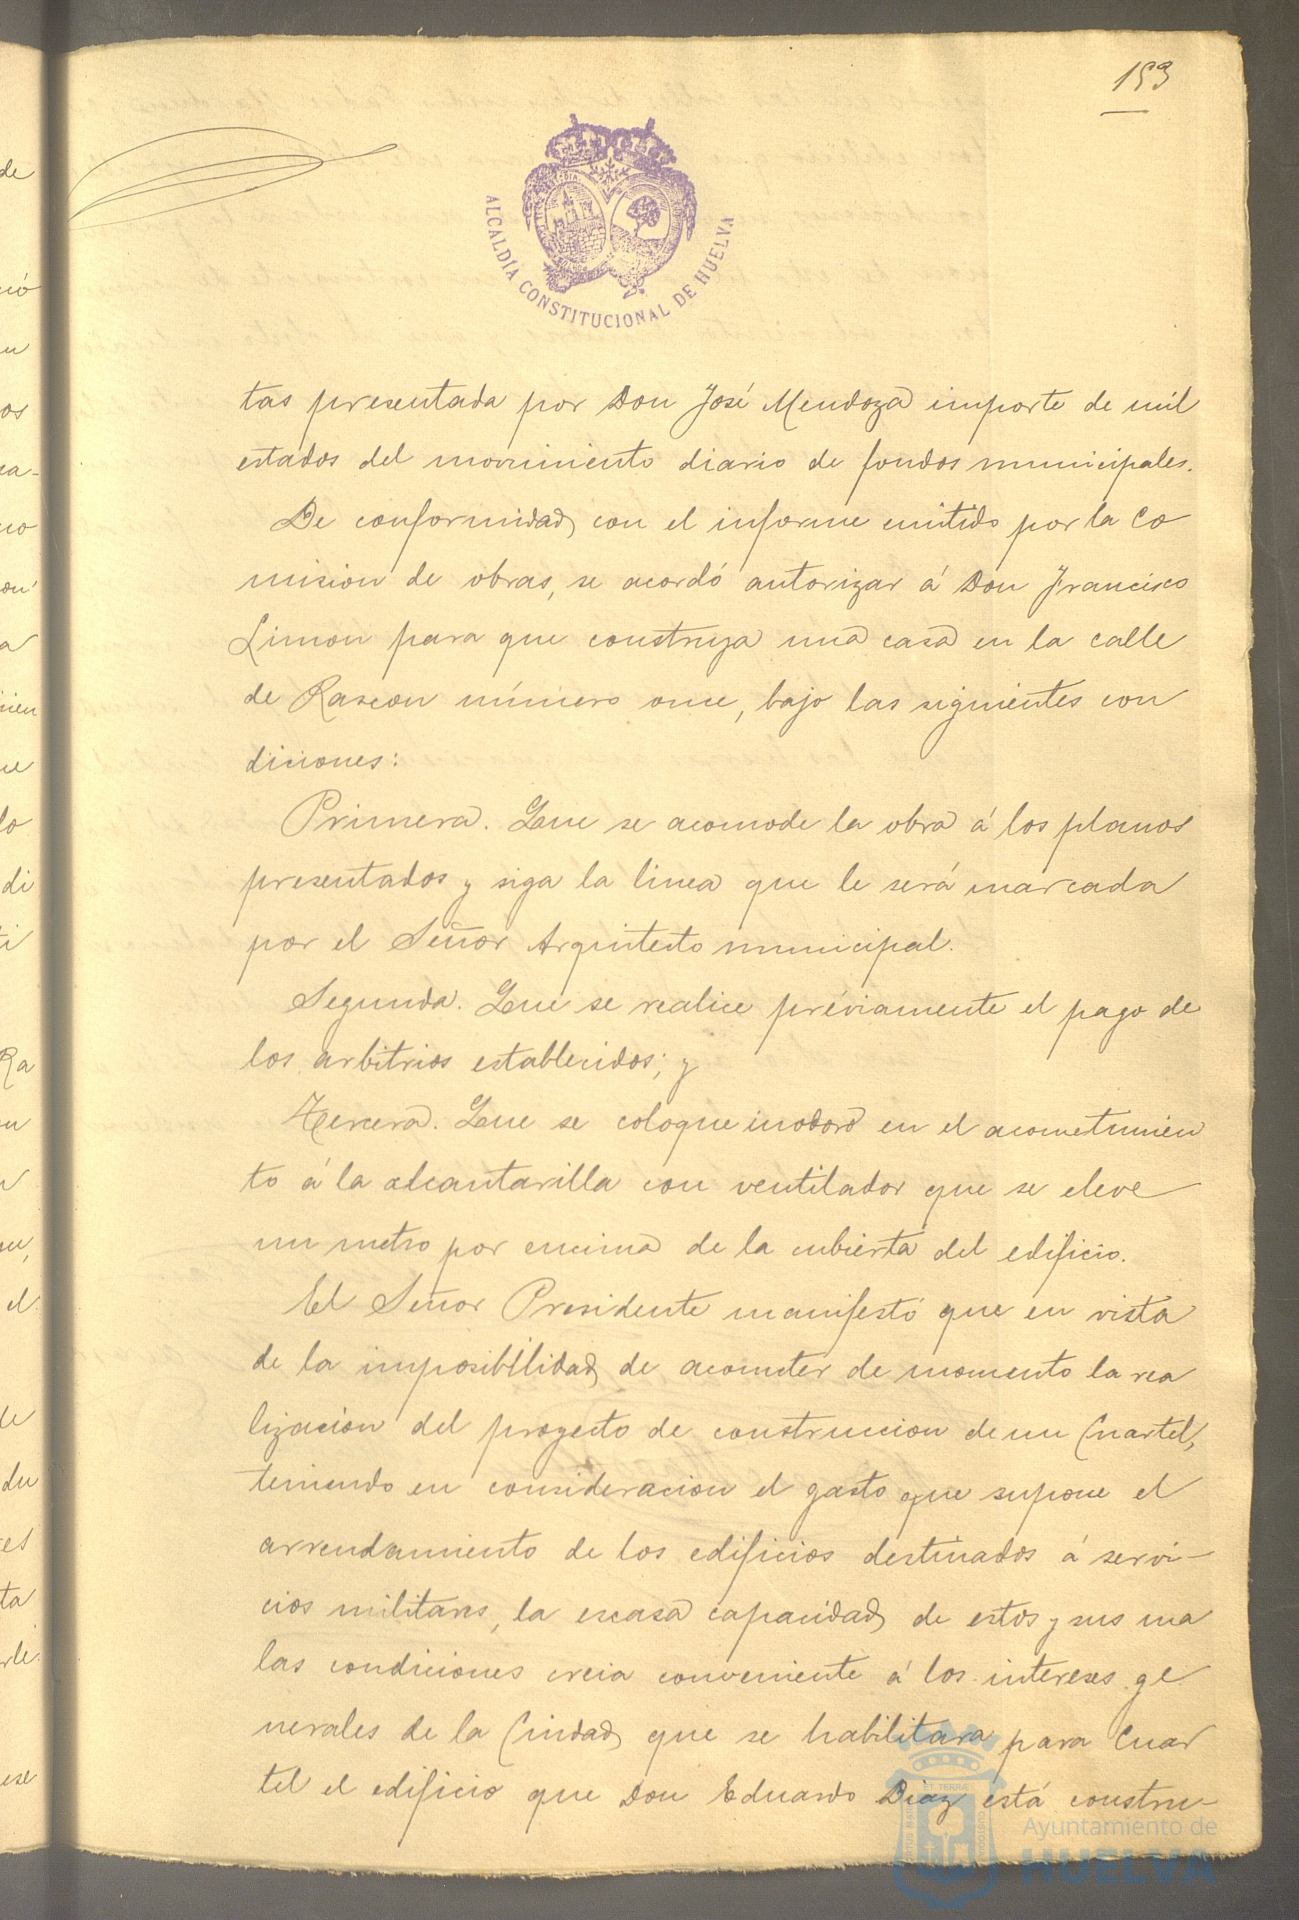 153
ALCALDÍA CONSTITUCIONAL DE HUELVA
tas presentada por Don José Mendoza importe de mil
estados del movimiento diario de fondos municipales.
De conformidad con el informe emitido por la Co
mision de obras, se acordó autorizar á Don Francisco
Limon para que construya una casa en la calle
de Rascon número once, bajo las siguientes con
diciones:
Primera. Que se acomode la obra á los planos
presentados y siga la linea que le será marcada
por el Señor Arquitecto municipal.
Segunda. Que se realice préviamente el pago de
los arbitrios establecidos; y
Tercera. Que se coloque inodoro en el acometimien
to á la alcantarilla con ventilador que se eleve
un metro por encima de la cubierta del edificio.
El Señor Presidente manifestó que en vista
de la imposibilidad de acometer de momento la rea
lizacion del proyecto de construccion de un Cuartel,
teniendo en consideracion el gasto que supone el
arrendamiento de los edificios destinados á servi-
cios militares, la escasa capacidad de estos y sus ma
las condiciones creia conveniente á los intereses ge
nerales de la Ciudad que se habilitara para Cuar
tel el edificio que Don Eduardo Diaz está constru-
Ayuntamiento de
HUELVA